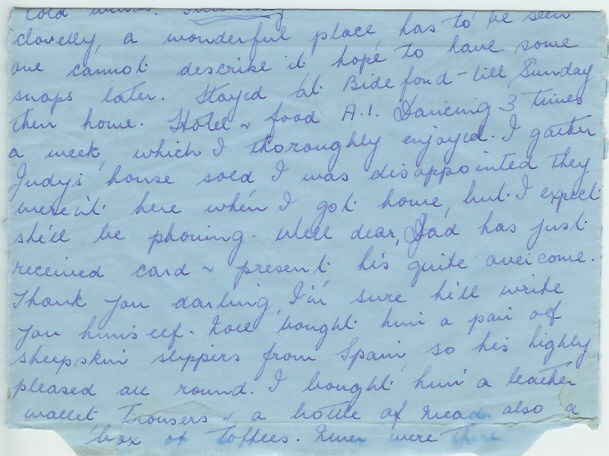 cold
clovelly, a wonderful place has to be seen
one cannot describe it, hope to have some
snaps later. Stayed at Bideford - till Sunday
then home. Hotel & food A.1. Dancing 3 times
a week, which I thoroughly enjoyed. I gather
Judy's house sold I was disappointed they
weren't here when I got home, but I expect
she'll be phoning. Well dear, Dad has just
received card & present he's quite overcome.
Thank you darling, I'm sure he'll write
you himself. bought him a pair of
sheepskin slippers from Spain, so his highly
pleased all round. I bought him a leather
wallet Trousers & a bottle of mead also a
box of Toffees. were there